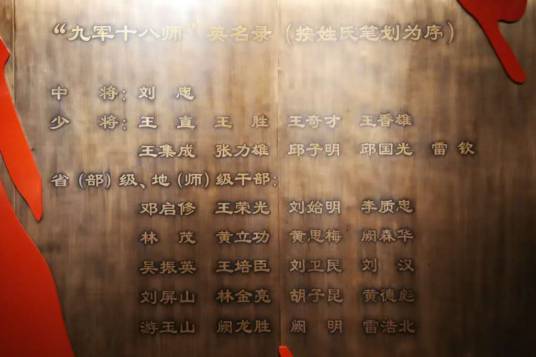 “九军十八师”英名录（按姓氏笔划为序）
中 将：刘 忠
少 将：王 直 王 胜 王奇才 王香雄
王集成 张力雄 邱子明 邱国光 雷 钦
省（部）级、地（师）级干部：
邓启修 王荣光 刘始明 李质忠
林 茂 黄立功 黄思梅 阙森华
吴振英 王培臣 刘卫民 刘 汉
刘屏山 林金亮 胡子昆 黄德彪
游玉山 阙龙胜 阙 明 雷浩北